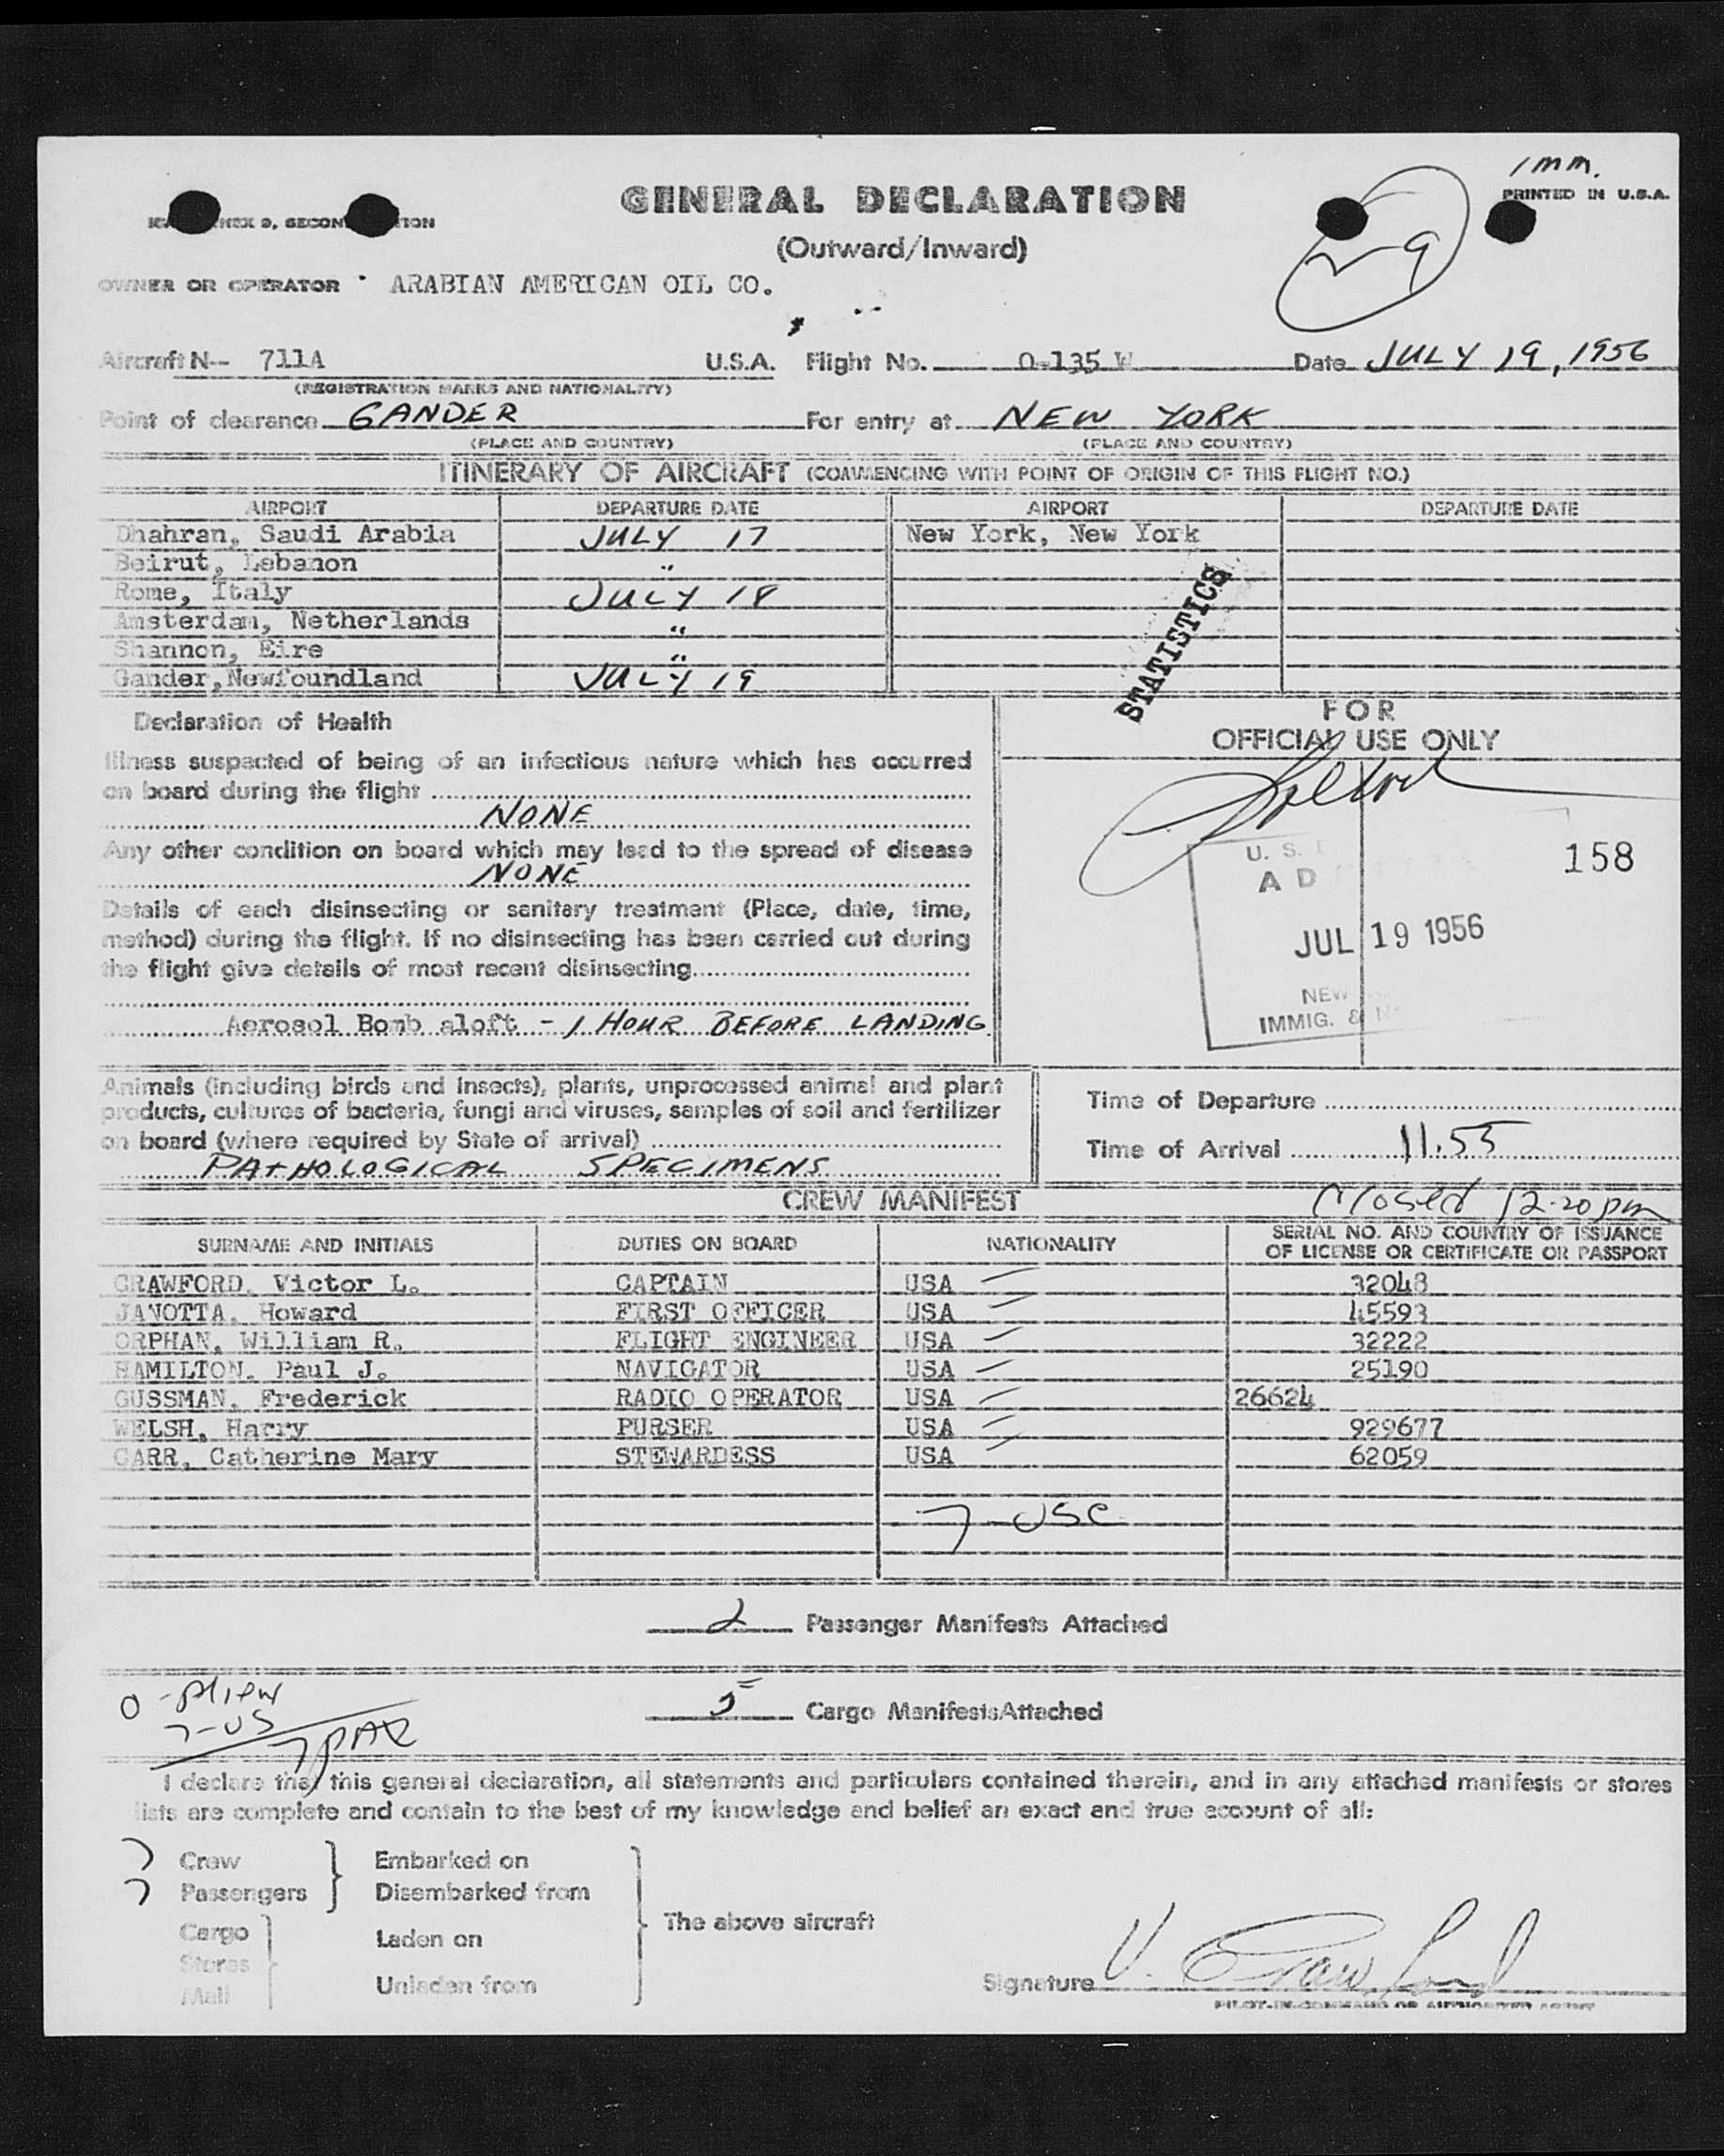 1mm.
PRINTED IN U.S.A.
GENERAL DECLARATION
NEX 9, SECON TION
(Outward/Inward)
29
OWNER OR OPERATOR ARABIAN AMERICAN OIL CO.
Aircraft N-- 711A U.S.A. Flight No. 0-135 W Date JULY 19, 1956
(REGISTRATION MARKS AND NATIONALITY)
Point of clearance GANDER For entry at NEW YORK
(PLACE AND COUNTRY) (PLACE AND COUNTRY)
ITINERARY OF AIRCRAFT (COMMENCING WITH POINT OF ORIGIN OF THIS FLIGHT NO.)
AIRPORT DEPARTURE DATE AIRPORT DEPARTURE DATE
Dhahran, Saudi Arabia JULY 17 New York, New York
Beirut, Lebanon "
Rome, Italy JULY 18
Amsterdam, Netherlands "
Shannon, Eire "
Gander, Newfoundland JULY 19
STATISTICS
Declaration of Health
FOR
OFFICIAL USE ONLY
Illness suspected of being of an infectious nature which has occurred
on board during the flight
NONE
Any other condition on board which may lead to the spread of disease
NONE
U. S.
A D
158
Details of each disinsecting or sanitary treatment (Place, date, time,
method) during the flight. If no disinsecting has been carried out during
the flight give details of most recent disinsecting
JUL 19 1956
NEW
IMMIG. &
Aerosol Bomb aloft - 1 HOUR BEFORE LANDING
Animals (including birds and insects), plants, unprocessed animal and plant
products, cultures of bacteria, fungi and viruses, samples of soil and fertilizer
on board (where required by State of arrival)
PATHOLOGICAL SPECIMENS
Time of Departure
Time of Arrival 11.55
CREW MANIFEST
Closed 12.20 pm
SURNAME AND INITIALS DUTIES ON BOARD NATIONALITY SERIAL NO. AND COUNTRY OF ISSUANCE
OF LICENSE OR CERTIFICATE OR PASSPORT
CRAWFORD, Victor L. CAPTAIN USA 32048
JANOTTA, Howard FIRST OFFICER USA 45593
ORPHAN, William R. FLIGHT ENGINEER USA 32222
HAMILTON, Paul J. NAVIGATOR USA 25190
GUSSMAN, Frederick RADIO OPERATOR USA 26624
WELSH, Harry PURSER USA 929677
CARR, Catherine Mary STEWARDESS USA 62059
7-USC
2 Passenger Manifests Attached
5 Cargo Manifests Attached
0-Alien
7-US
7 PAX
I declare that this general declaration, all statements and particulars contained therein, and in any attached manifests or stores
lists are complete and contain to the best of my knowledge and belief an exact and true account of all:
7 Crew
7 Passengers
Cargo
Stores
Mail
Embarked on
Disembarked from
Laden on
Unladen from
The above aircraft
Signature V. Crawford
PILOT-IN-COMMAND OR AUTHORIZED AGENT